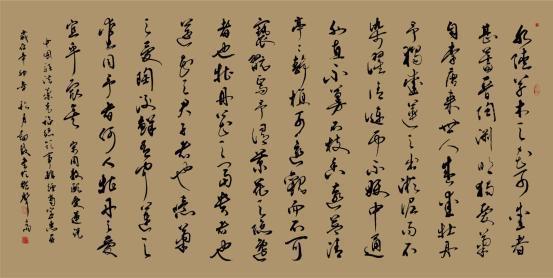 水陸草木之花可愛者
甚蕃晉陶淵明獨愛菊
自李唐來世人盛愛牡丹
予獨愛蓮之出淤泥而不
染濯清漣而不妖中通
外直不蔓不枝香遠益清
亭亭靜植可遠觀而不可
褻翫焉予謂菊花之隱逸
者也牡丹花之富貴者也
蓮花之君子者也噫菊
之愛陶後鮮有聞蓮之
愛同予者何人牡丹之愛
宜乎衆矣 宋周敦頤愛蓮説
中國
歲在辛卯